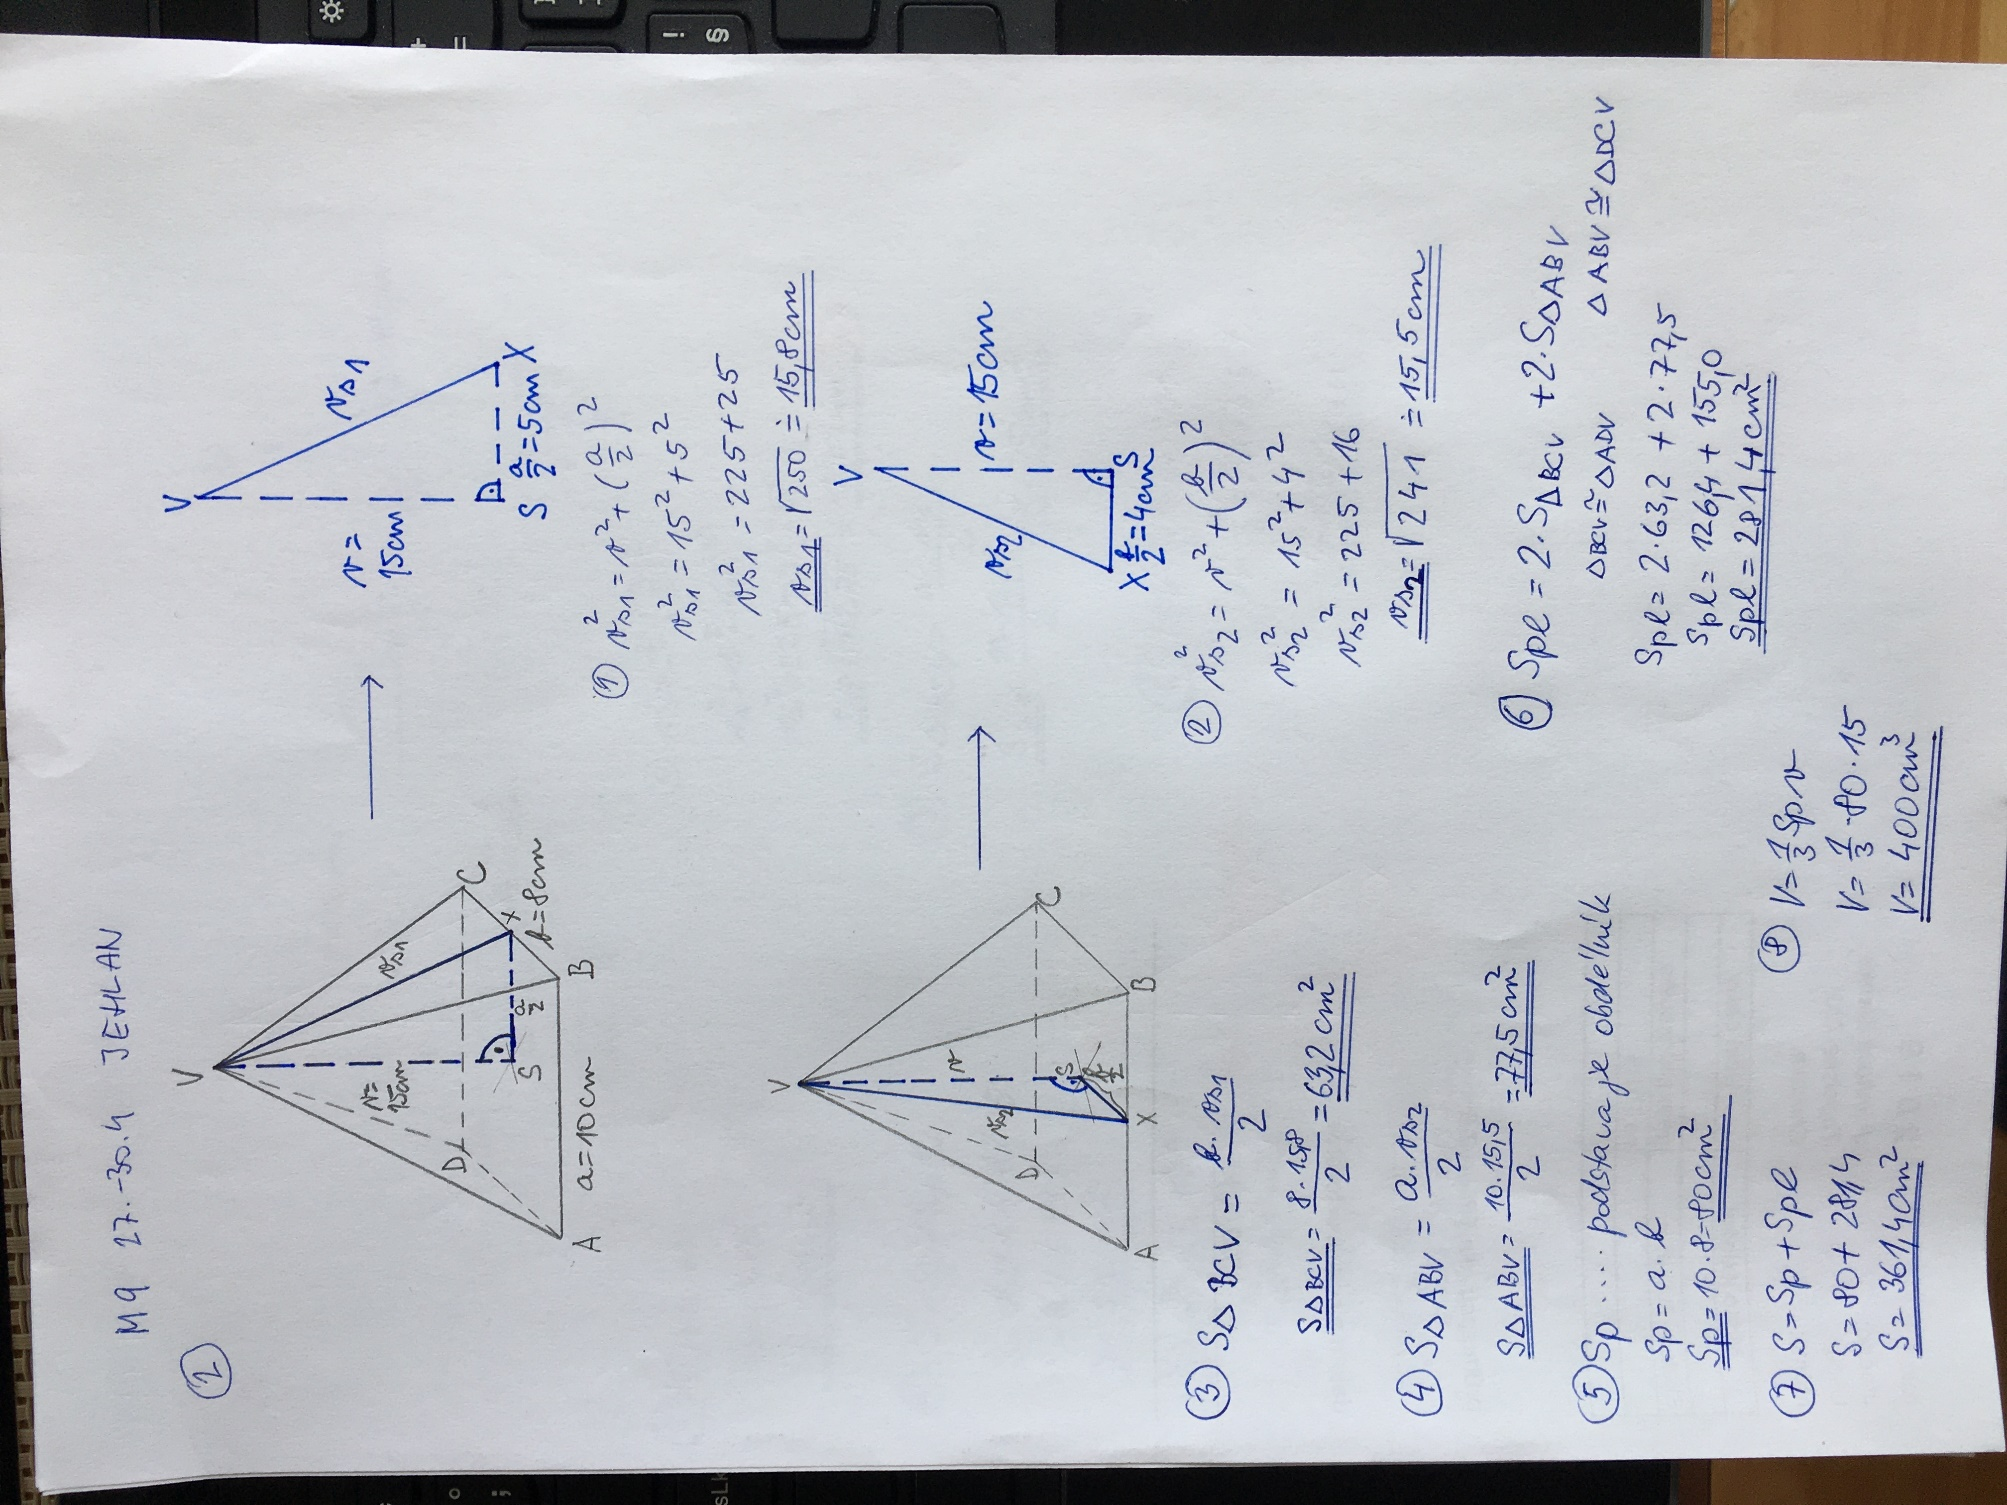 M9 27.-30.4 JEHLAN
②
V
v=
15cm
vs1
D
C
S
a/2
X
b=8cm
A
B
a=10cm
V
v=
15cm
vs1
S
a/2=5cm
X
① vs1²=v²+(a/2)²
vs1²=15²+5²
vs1²=225+25
vs1=√250≐15,8cm
V
v
vs2
D
C
S
b/2
A
X
B
V
vs2
v=15cm
X
b/2=4cm
S
② vs2²=v²+(b/2)²
vs2²=15²+4²
vs2²=225+16
vs2=√241≐15,5cm
③ S△BCV=b·vs1/2
S△BCV=8·15,8/2=63,2cm²
④ S△ABV=a·vs2/2
S△ABV=10·15,5/2=77,5cm²
⑤ Sp.....podstava je obdélník
Sp=a·b
Sp=10·8=80cm²
⑥ Spl=2·S△BCV+2·S△ABV
△BCV≅△ADV △ABV≅△DCV
Spl=2·63,2+2·77,5
Spl=126,4+155,0
Spl=281,4cm²
⑦ S=Sp+Spl
S=80+281,4
S=361,4cm²
⑧ V=1/3 Sp·v
V=1/3·80·15
V=400cm³